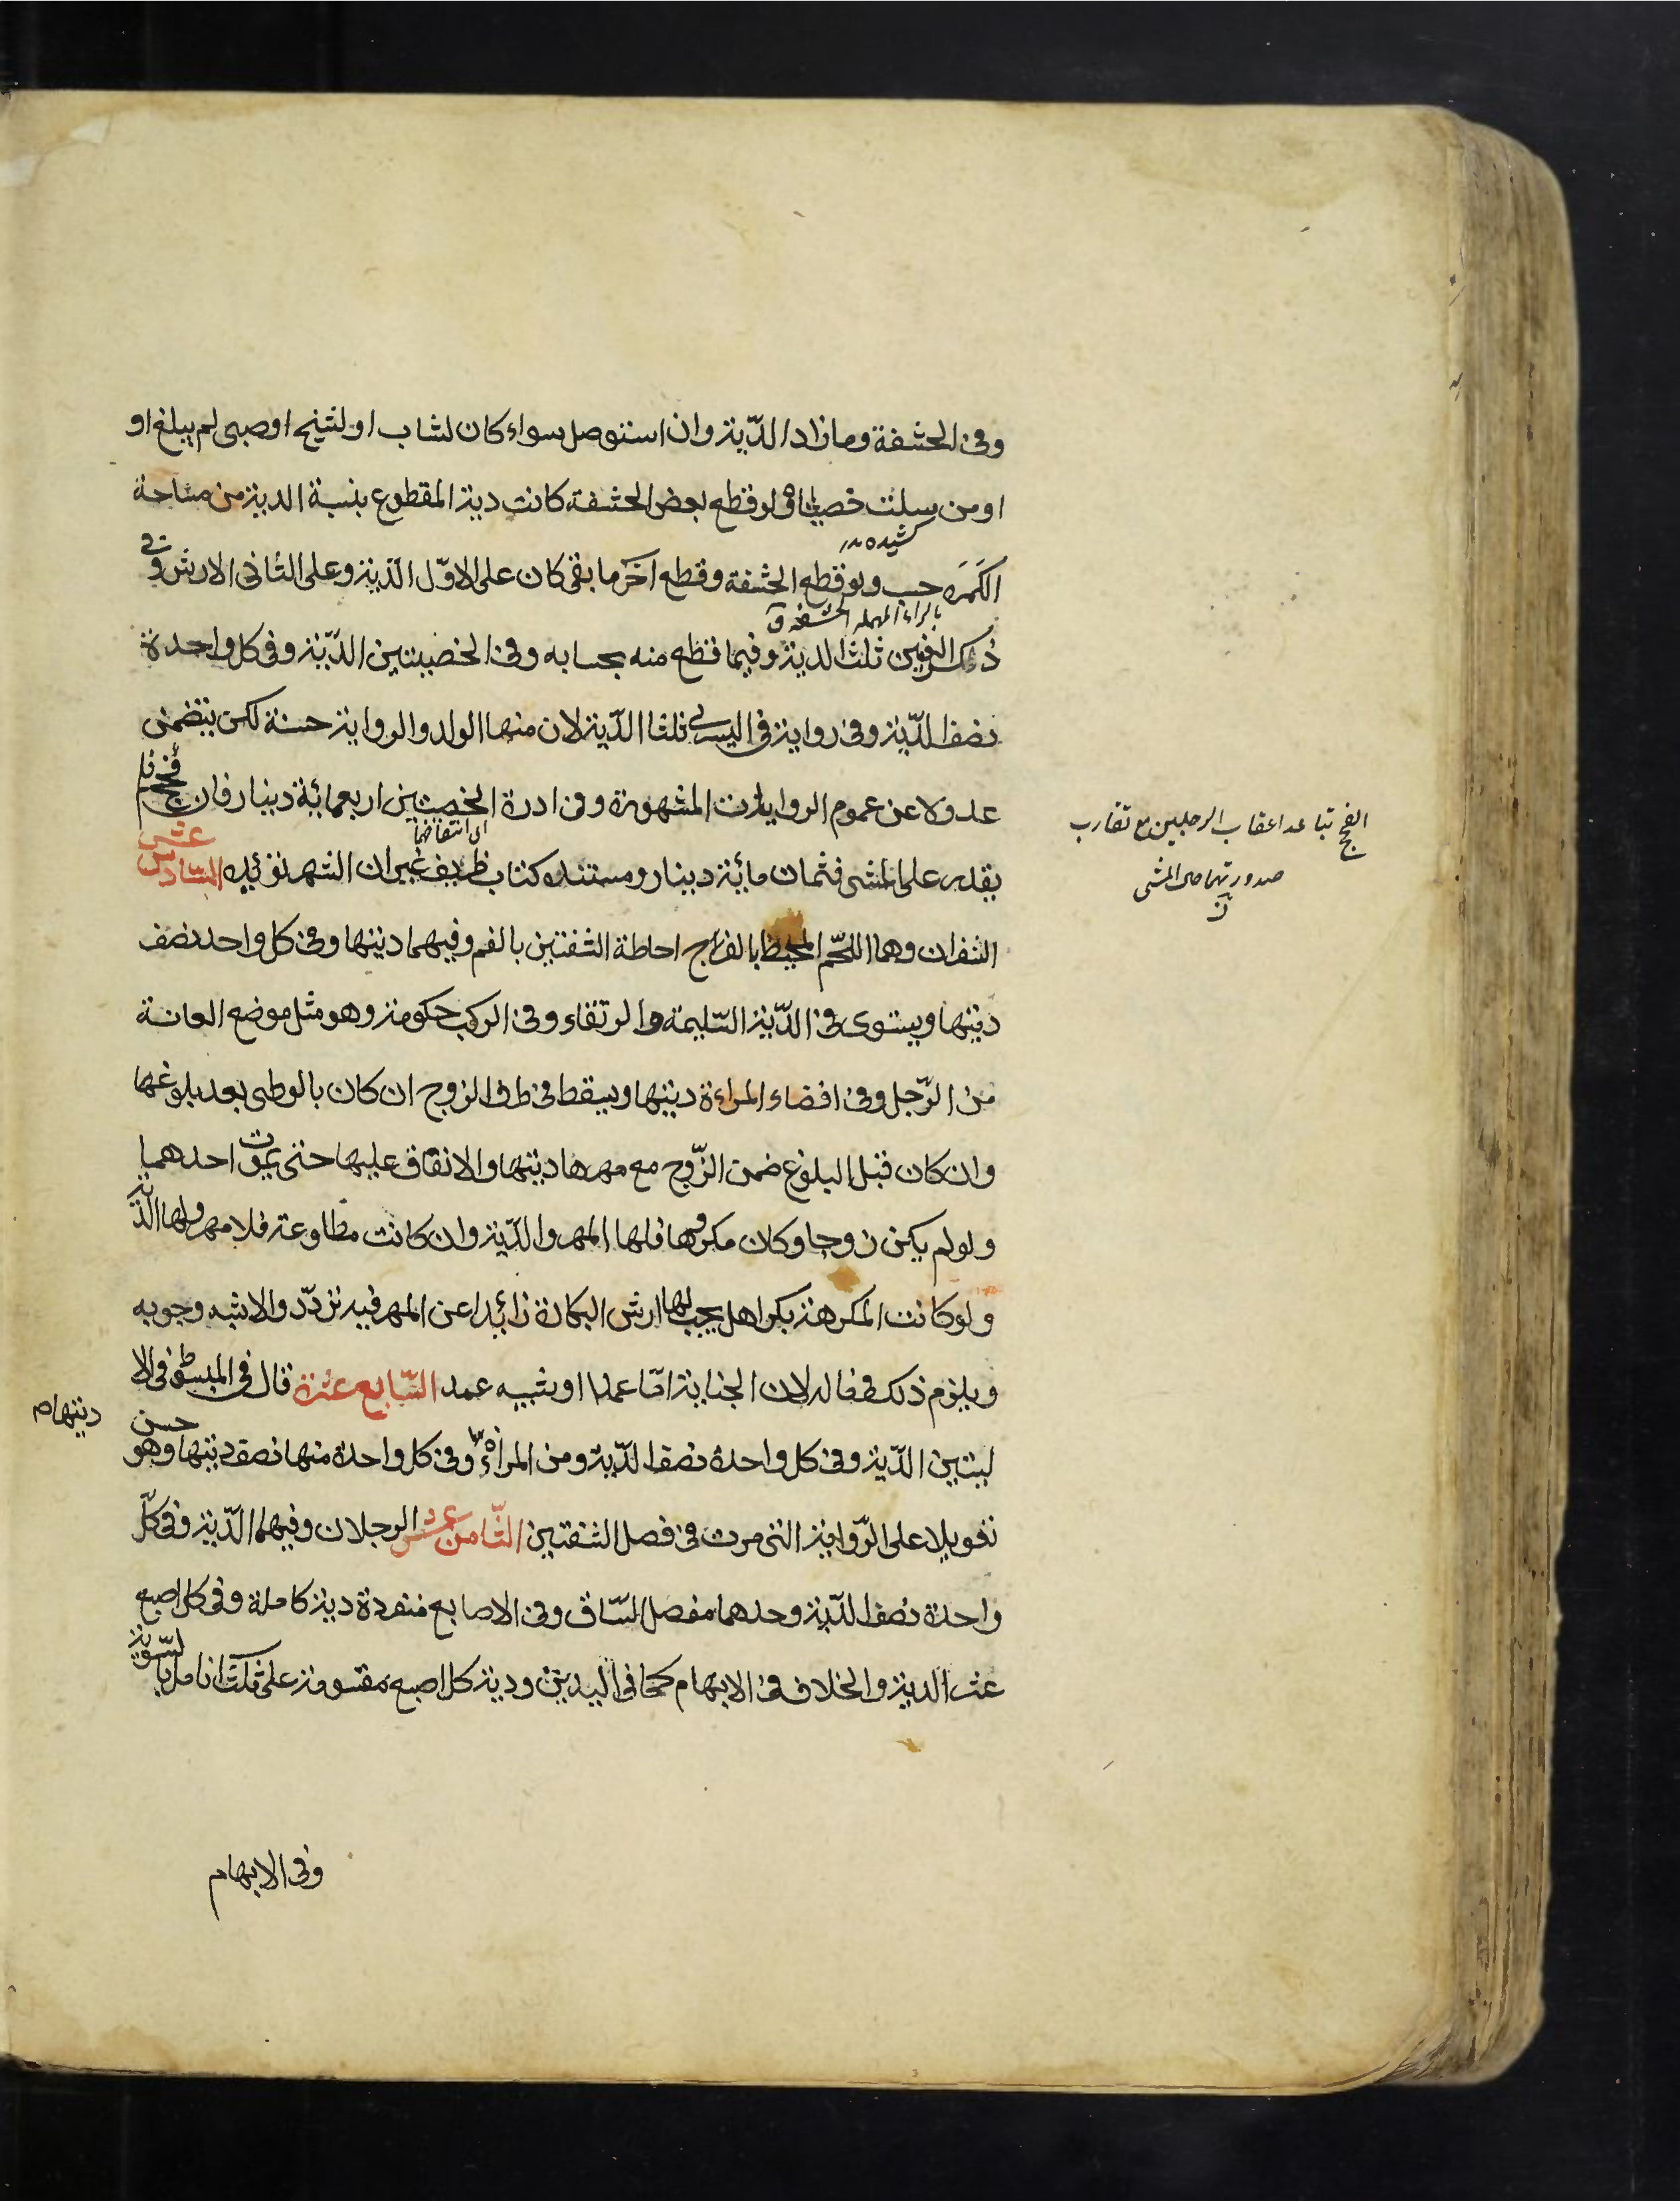 وفى الحشفة وما زاد الدّية وان استوصل سواء كان لشاب او لشيخ او صبى لم يبلغ او
او من سلت خصيتاه ولو قطع بعض الحشفة كانت دية المقطوع بنسبة الدية من مساحة
كشيده
الكَمَرَه حسب ولو قطع الحشفة وقطع آخَر ما بقى كان على الاوّل الدّية وعلى الثانى الارش وفى
بالراء المهملة الحشفة ق
ذكر العنين ثلث الدية وفيما قطع منه بحسابه وفى الخصيتين الدّية وفى كل واحدة
نصف الدّية وفى رواية فى اليسرى ثلثا الدّية لان منها الولد والرواية حسنة لكن يتضمن
عدولا عن عموم الروايات المشهورة وفى ادرة الخصيتين اربعمائة دينار فان فحج فلم
اى انتفاخها
يقدر على المشى فثمان مائة دينار ومستنده كتاب ظريف غير ان الشهرة تؤيده السّادس عشر
الشفران وهما اللّحم المحيط بالفرج احاطة الشفتين بالفم وفيهما ديتها وفى كل واحد نصف
ديتها ويستوى فى الدّية السّليمة والرتقاء وفى الركب حكومة وهو مثل موضع العانة
من الرّجل وفى افضاء المراءة ديتها ويسقط فى طرف الزوج ان كان بالوطى بعد بلوغها
وان كان قبل البلوغ ضمن الزّوج مع مهرها ديتها والانفاق عليها حتى يموت احدهما
ولو لم يكن زوجا وكان مكرها فلها المهر والدّية وان كانت مطاوعة فلا مهر ولها الدّية
ولو كانت المكرهة بكرا هل يجب لها ارش البكارة زائدا عن المهر فيه تردّد والاشبه وجوبه
ويلزم ذلك فى ماله لان الجناية امّا عمدا او شبيه عمد السّابع عشرة قال فى المبسوط فى الا
ديتها م
ليتين الدّية وفى كل واحدة نصف الدّية ومن المراة وفى كل واحدة منها نصف ديتها وهو حسن
تعويلا على الرّواية التى مرت فى فصل الشفتين الثّامن عشر الرجلان وفيهما الدّية وفى كلّ
واحدة نصف الدّية وحدهما مفصل السّاق وفى الاصابع منفردة دية كاملة وفى كل اصبع
عشر الدية والخلاف فى الابهام كما فى اليدين ودية كل اصبع مقسومة على ثلث انامل بالسّوية
وفى الابهام
الفحج تباعد اعقاب الرجلين مع تقارب
صدورهما حال المشى
ن